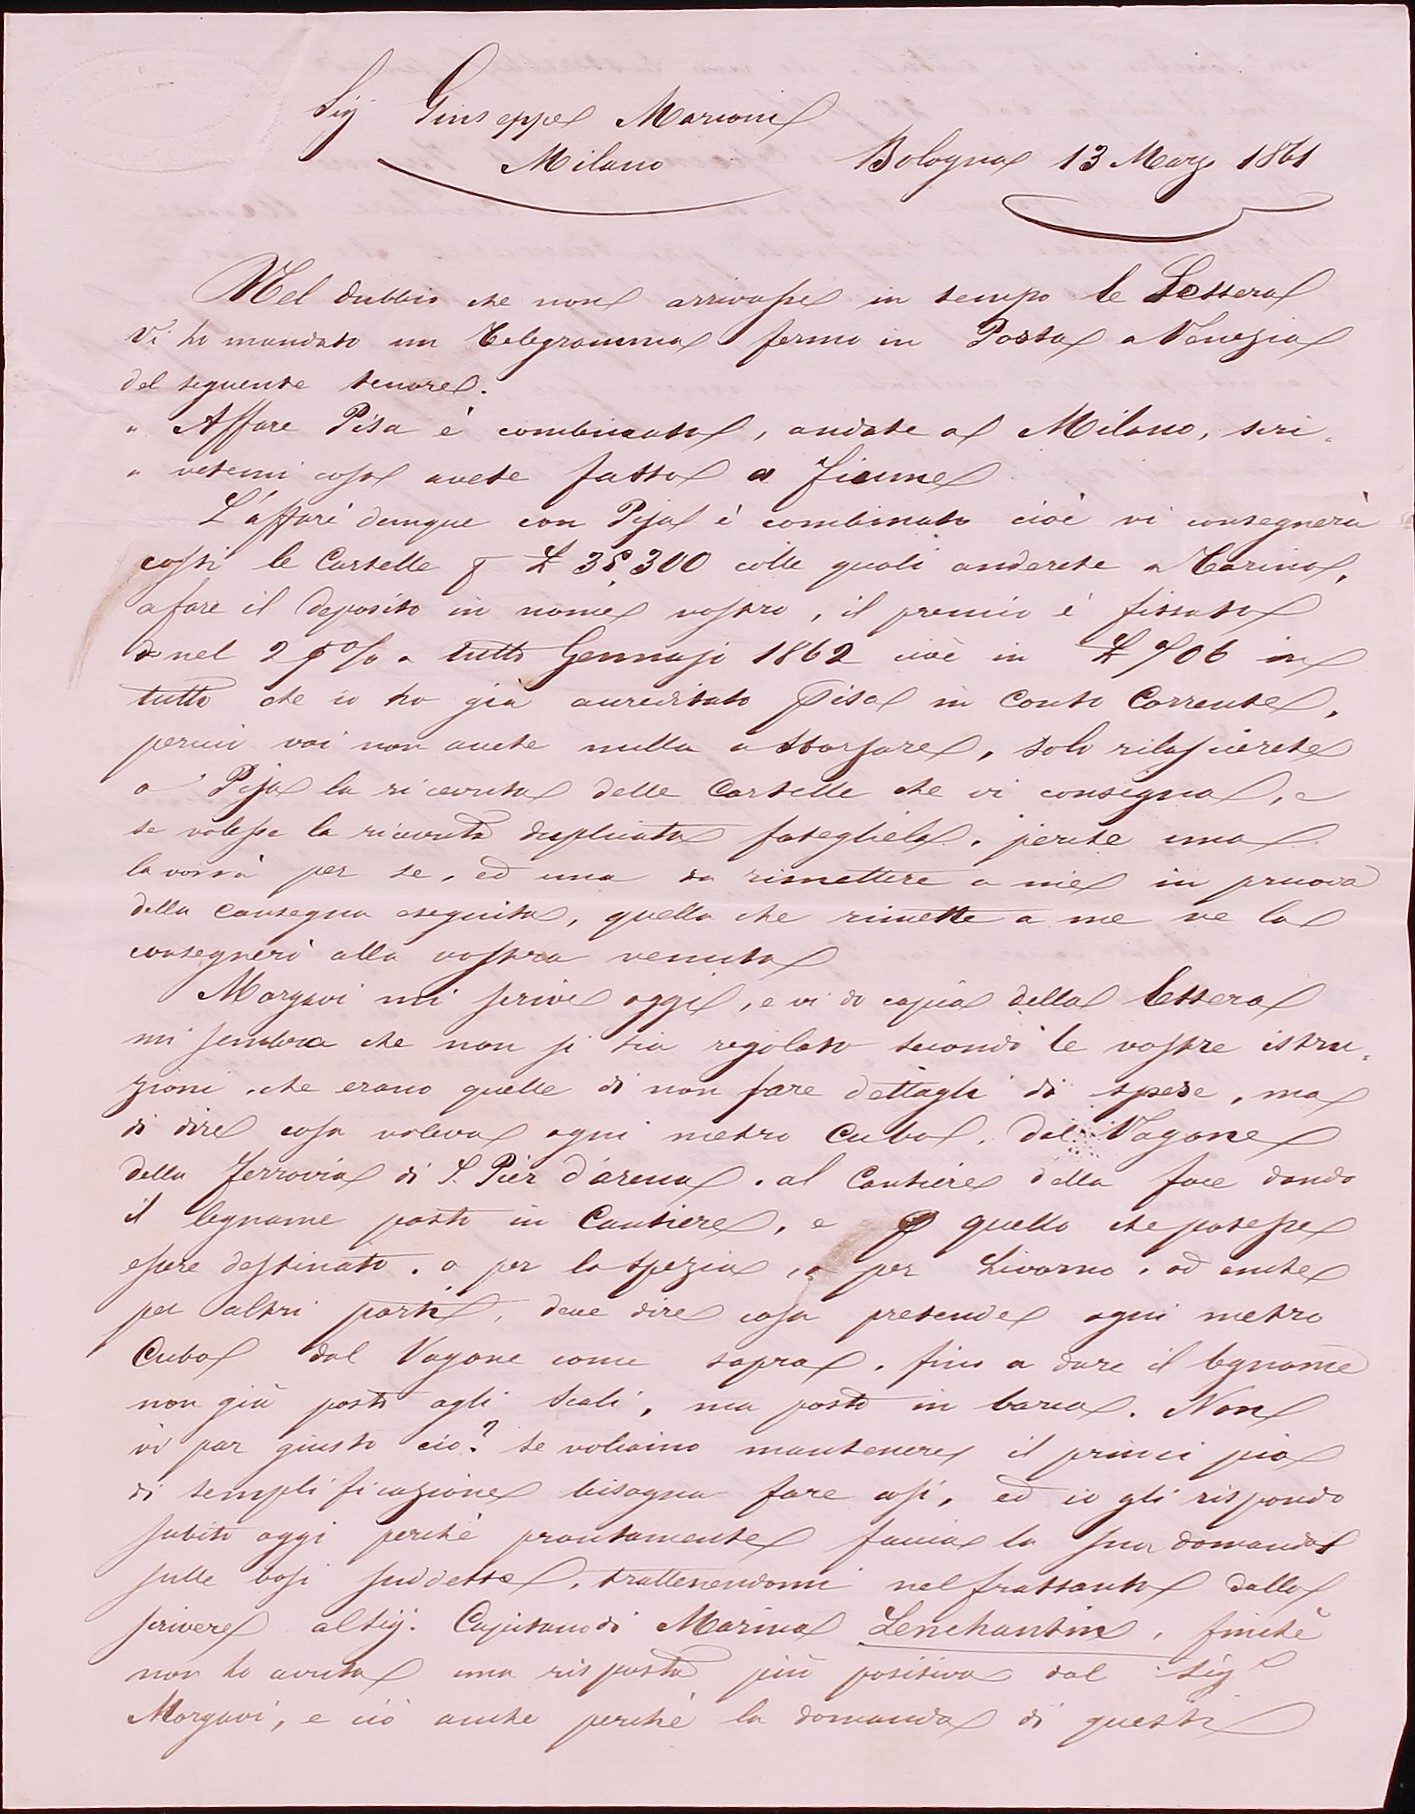 Sig Giuseppe Marioni
Milano
Bologna 13 Marzo 1861
Nel dubbio che non arrivasse in tempo le Lettera
Vi ho mandato un Telegramma fermo in Posta a Venezia
del seguente tenore.
" Affare Pisa è combinato, andate a Milano, scri-
" vetemi cosa avete fatto a Fiume
L'affare dunque con Pisa è combinato cioè vi consegnerà
costì le Cartelle p £ 35,300 colle quali anderete a Torino,
a fare il deposito in nome vostro, il premio è fissato
nel 2 p% a tutto Gennajo 1862 cioè in £ 706 in
tutto che io ho già accreditato Pisa in Conto Corrente,
perciò voi non avete nulla a sborsare, solo rilascierete
a Pisa la ricevuta delle Cartelle che vi consegna, e
se volesse la ricevuta duplicata fategliela, perchè una
la vorrà per se, ed una da rimettere a me in pruova
della consegna eseguita, quella che rimette a me ve la
consegnerò alla vostra venuta
Morgavi mi scrive oggi, e vi do copia della lettera
mi sembra che non si sia regolato secondo le vostre istru-
zioni, che erano quelle di non fare dettagli di spese, ma
di dire cosa voleva ogni metro Cubo, dal Vagone
della Ferrovia di S. Pier d'arena, al Cantiere della foce dando
il legname posto in Cantiere, e p quello che potesse
essere destinato, o per la Spezia, o per Livorno, od anche
per altri porti, deve dire cosa pretende ogni metro
Cubo dal Vagone come sopra, fino a dare il legname
non già posto agli Scali, ma posto in barca. Non
vi par giusto ciò? se vogliamo mantenere il principio
di semplificazione bisogna fare così, ed io gli rispondo
subito oggi perchè prontamente faccia la sua domanda
sulle basi suddette, trattenendomi nel frattanto dallo
scrivere al Sig. Capitano di Marina Lenchantin, finchè
non ho avuta una risposta più positiva dal Sigr
Morgavi, e ciò anche perchè la domanda di questi